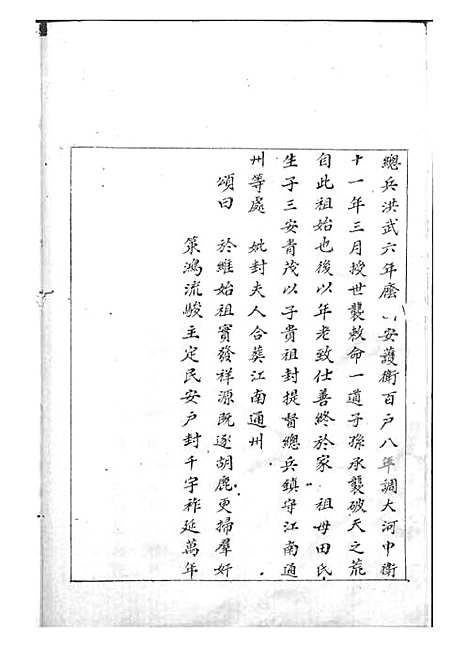 總兵洪武六年歷 安護衛百戶八年調大河中衛
十一年三月授世襲敕命一道子孫承襲破天之荒
自此祖始也後以年老致仕善終於家 祖母田氏
生子三安貴茂以子貴祖封提督總兵鎮守江南通
州等處 妣封夫人合葬江南通州
頌曰 於維始祖實發祥源既逐胡鹿更掃羣奸
策鴻流駿主定民安戶封千字祚延萬年